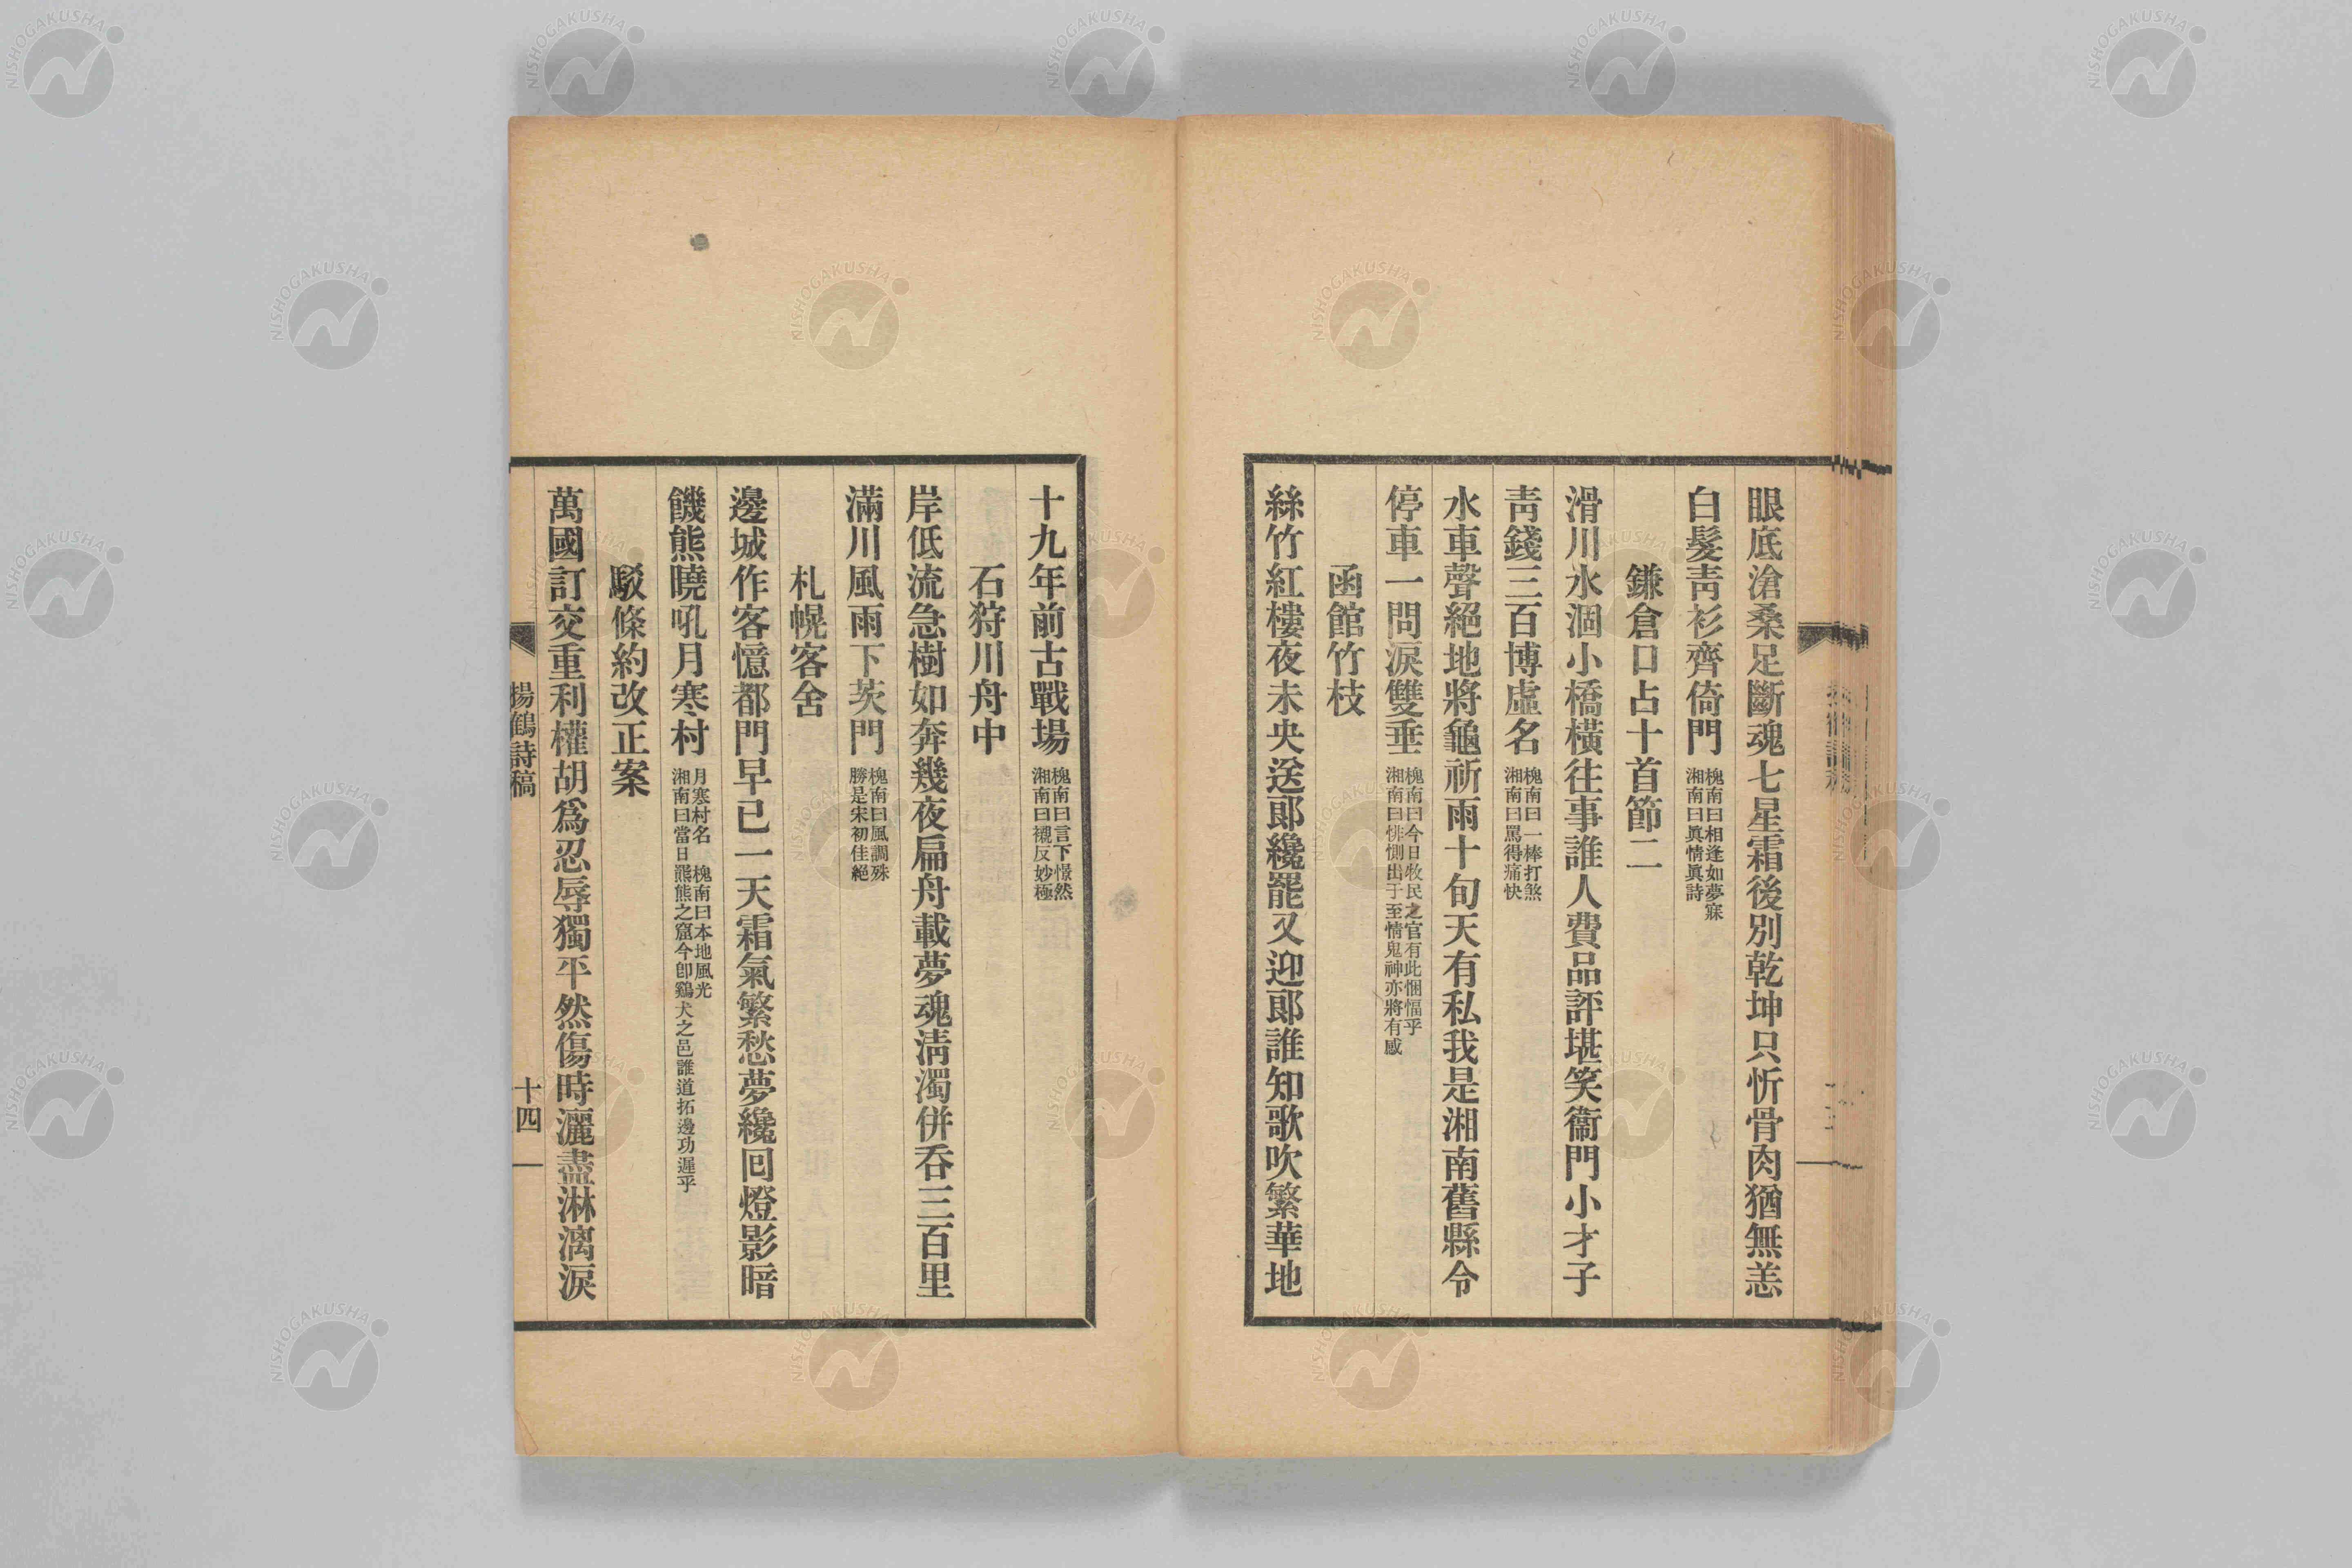 眼底滄桑足斷魂七星霜後別乾坤只忻骨肉猶無恙
白髮靑衫齊倚門
槐南曰相逢如夢寐
湘南曰眞情眞詩
鎌倉口占十首節二
滑川水涸小橋橫往事誰人費品評堪笑衞門小才子
靑錢三百博虛名
槐南曰一棒打煞
湘南曰罵得痛快
水車聲絕地將龜祈雨十旬天有私我是湘南舊縣令
停車一問淚雙垂
槐南曰今日牧民之官有此悃愊乎
湘南曰悱惻出于至情鬼神亦將有感
函館竹枝
絲竹紅樓夜未央送郞纔罷又迎郞誰知歌吹繁華地
十九年前古戰場
槐南曰言下憬然
湘南曰襯反妙極
石狩川舟中
岸低流急樹如奔幾夜扁舟載夢魂淸濁併呑三百里
滿川風雨下茨門
槐南曰風調殊
勝是宋初佳絕
札幌客舍
邊城作客憶都門早已一天霜氣繁愁夢纔回燈影暗
饑熊曉吼月寒村
月寒村名 槐南曰本地風光
湘南曰當日羆熊之窟今卽鷄犬之邑誰道拓邊功遲乎
駁條約改正案
萬國訂交重利權胡爲忍辱獨平然傷時灑盡淋漓淚
楊鶴詩稿
十四
NISHOGAKUSHA